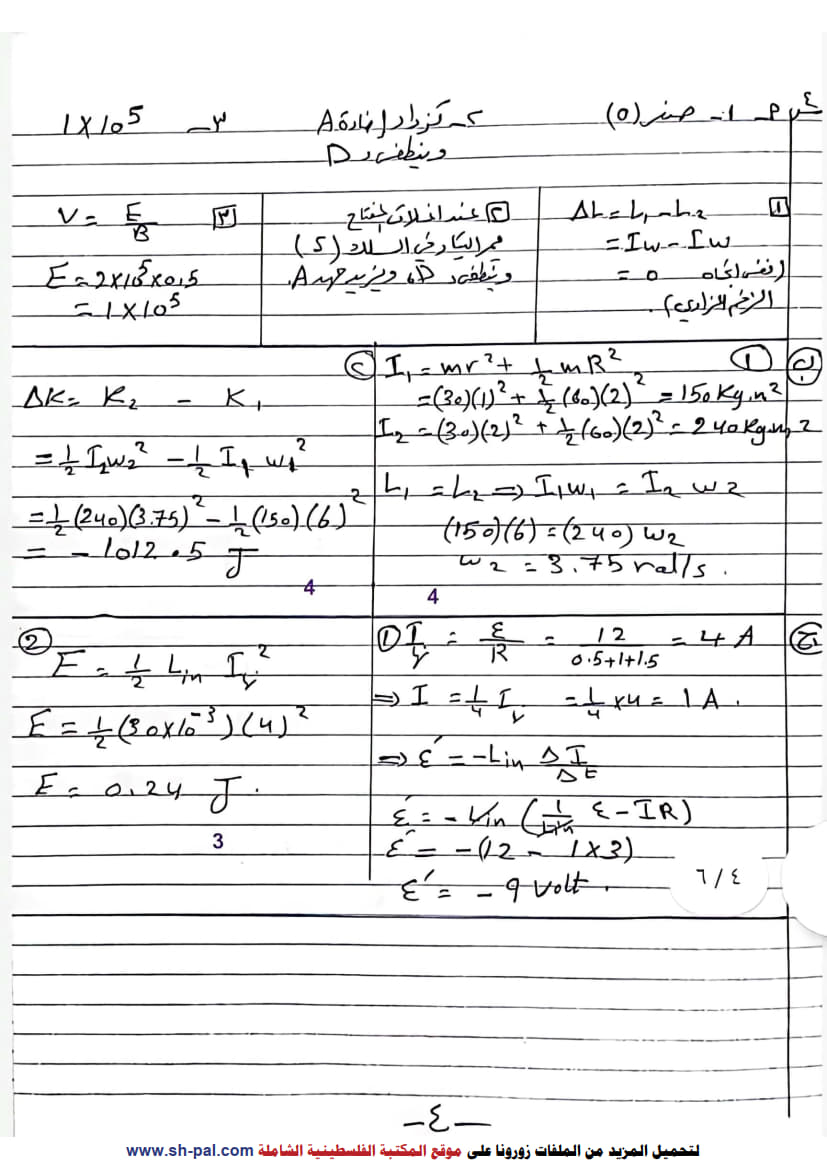 س٤ ٢- ١- صفر (٥) ٢- تزداد إضاءة A ٣- 1×10⁵
وينطفئ D
١ ΔL = L₁ - L₂
= Iω - Iω
= 0 (نفس اتجاه
الزخم الزاوي).
٢ عند اغلاق المفتاح
يمر التيار في السلك (S)
وينطفئ D، ويزيد جهد A.
٣ V = E/B
E = 2×10⁵×0.5
= 1×10⁵
ب ① I₁ = mr² + ½mR²
= (30)(1)² + ½(60)(2)² = 150 Kg.m²
I₂ = (30)(2)² + ½(60)(2)² = 240 Kg.m²
L₁ = L₂ ⇒ I₁ω₁ = I₂ω₂
(150)(6) = (240)ω₂
ω₂ = 3.75 rad/s.
4
٢ ΔK = K₂ - K₁
= ½I₂ω₂² - ½I₁ω₁²
= ½(240)(3.75)² - ½(150)(6)²
= -1012.5 J
4
ج ① I = ε/R = 12/0.5+1+1.5 = 4 A
⇒ I = ¼ I = ¼×4 = 1 A.
⇒ ε' = -Lin ΔI/Δt
ε' = -Lin (1/Lin ε - IR)
ε' = -(12 - 1×3)
ε' = -9 volt.
② E = ½ Lin I²
E = ½(30×10⁻³)(4)²
E = 0.24 J.
3
٤/٦
-٤-
لتحميل المزيد من الملفات زورونا على موقع المكتبة الفلسطينية الشاملة www.sh-pal.com